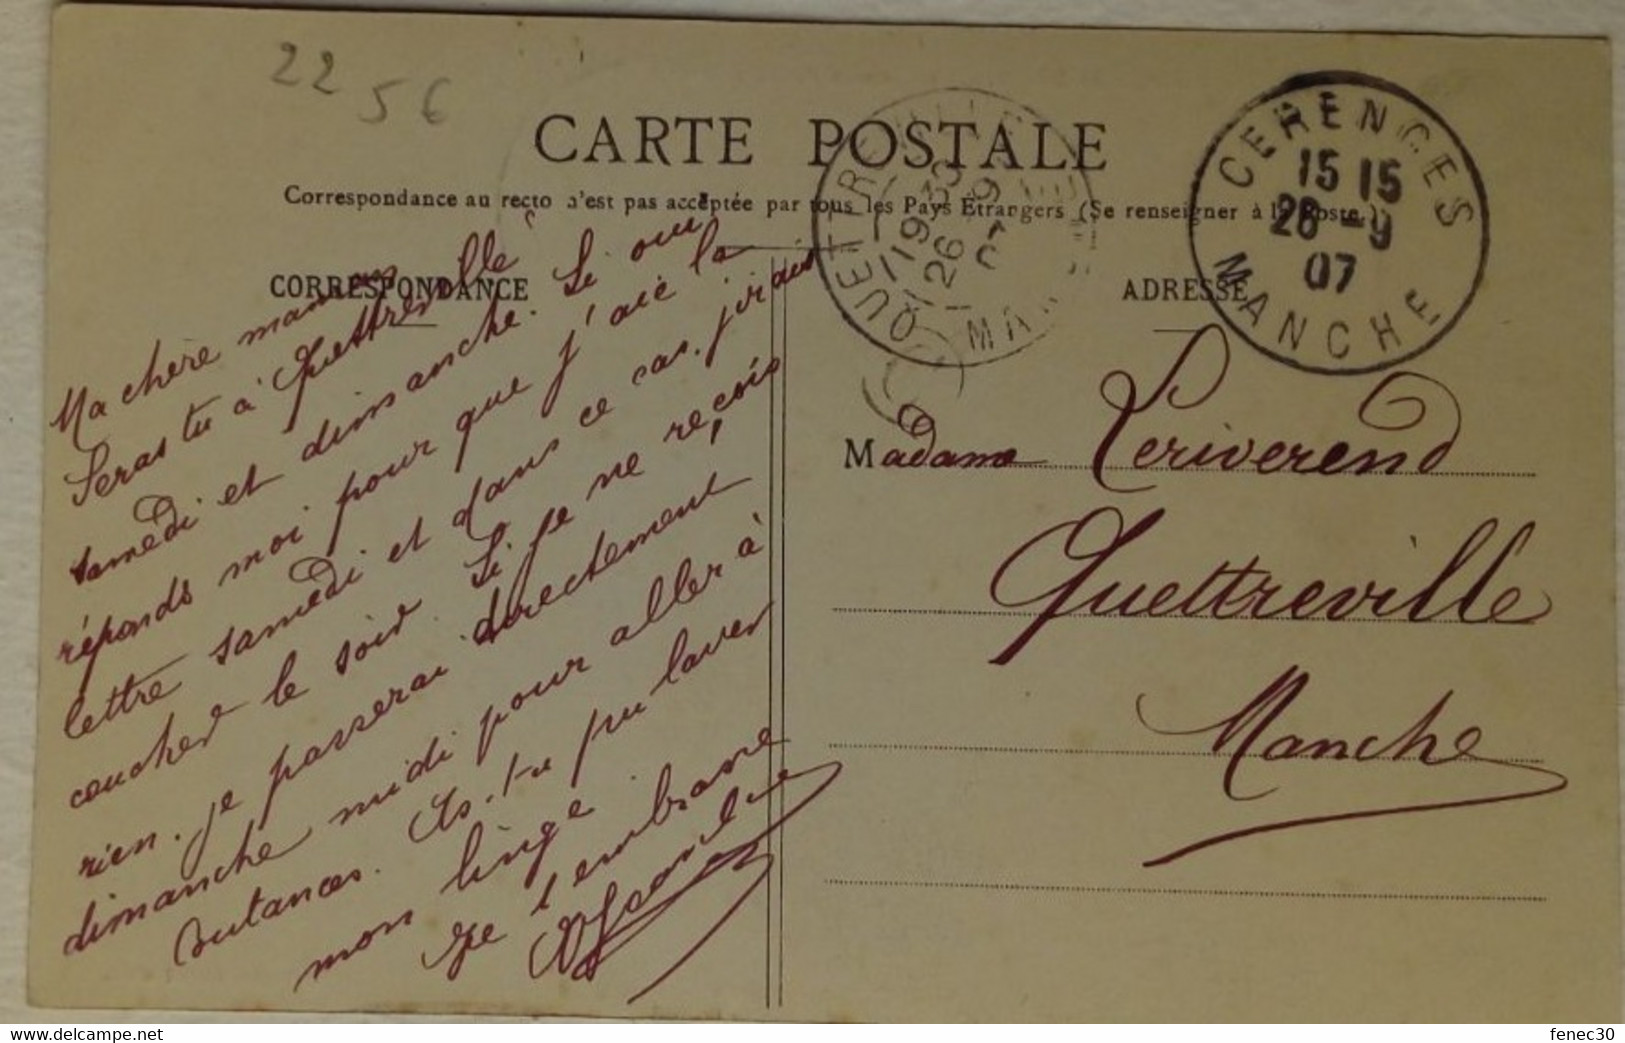 22 56
CARTE POSTALE
Correspondance au recto n'est pas acceptée par tous les Pays Étrangers (Se renseigner à la Poste.)
CORRESPONDANCE
Ma chère maman
Seras tu à Quettreville
samedi et dimanche. Si oui
réponds moi pour que j'aie la
lettre samedi et dans ce cas. j'irais
coucher le soir. Si je ne reçois
rien. je passerai directement
dimanche midi pour aller à
Outances. As-tu pu laver
mon linge
Je t'embrasse
QUETTREVILLE
19 30
26 9
07
MANCHE
CERENCES
15 15
26 -9
07
MANCHE
ADRESSE
Madame Leriverend
Quettreville
Manche
https://www.delcampe.net
fenec30